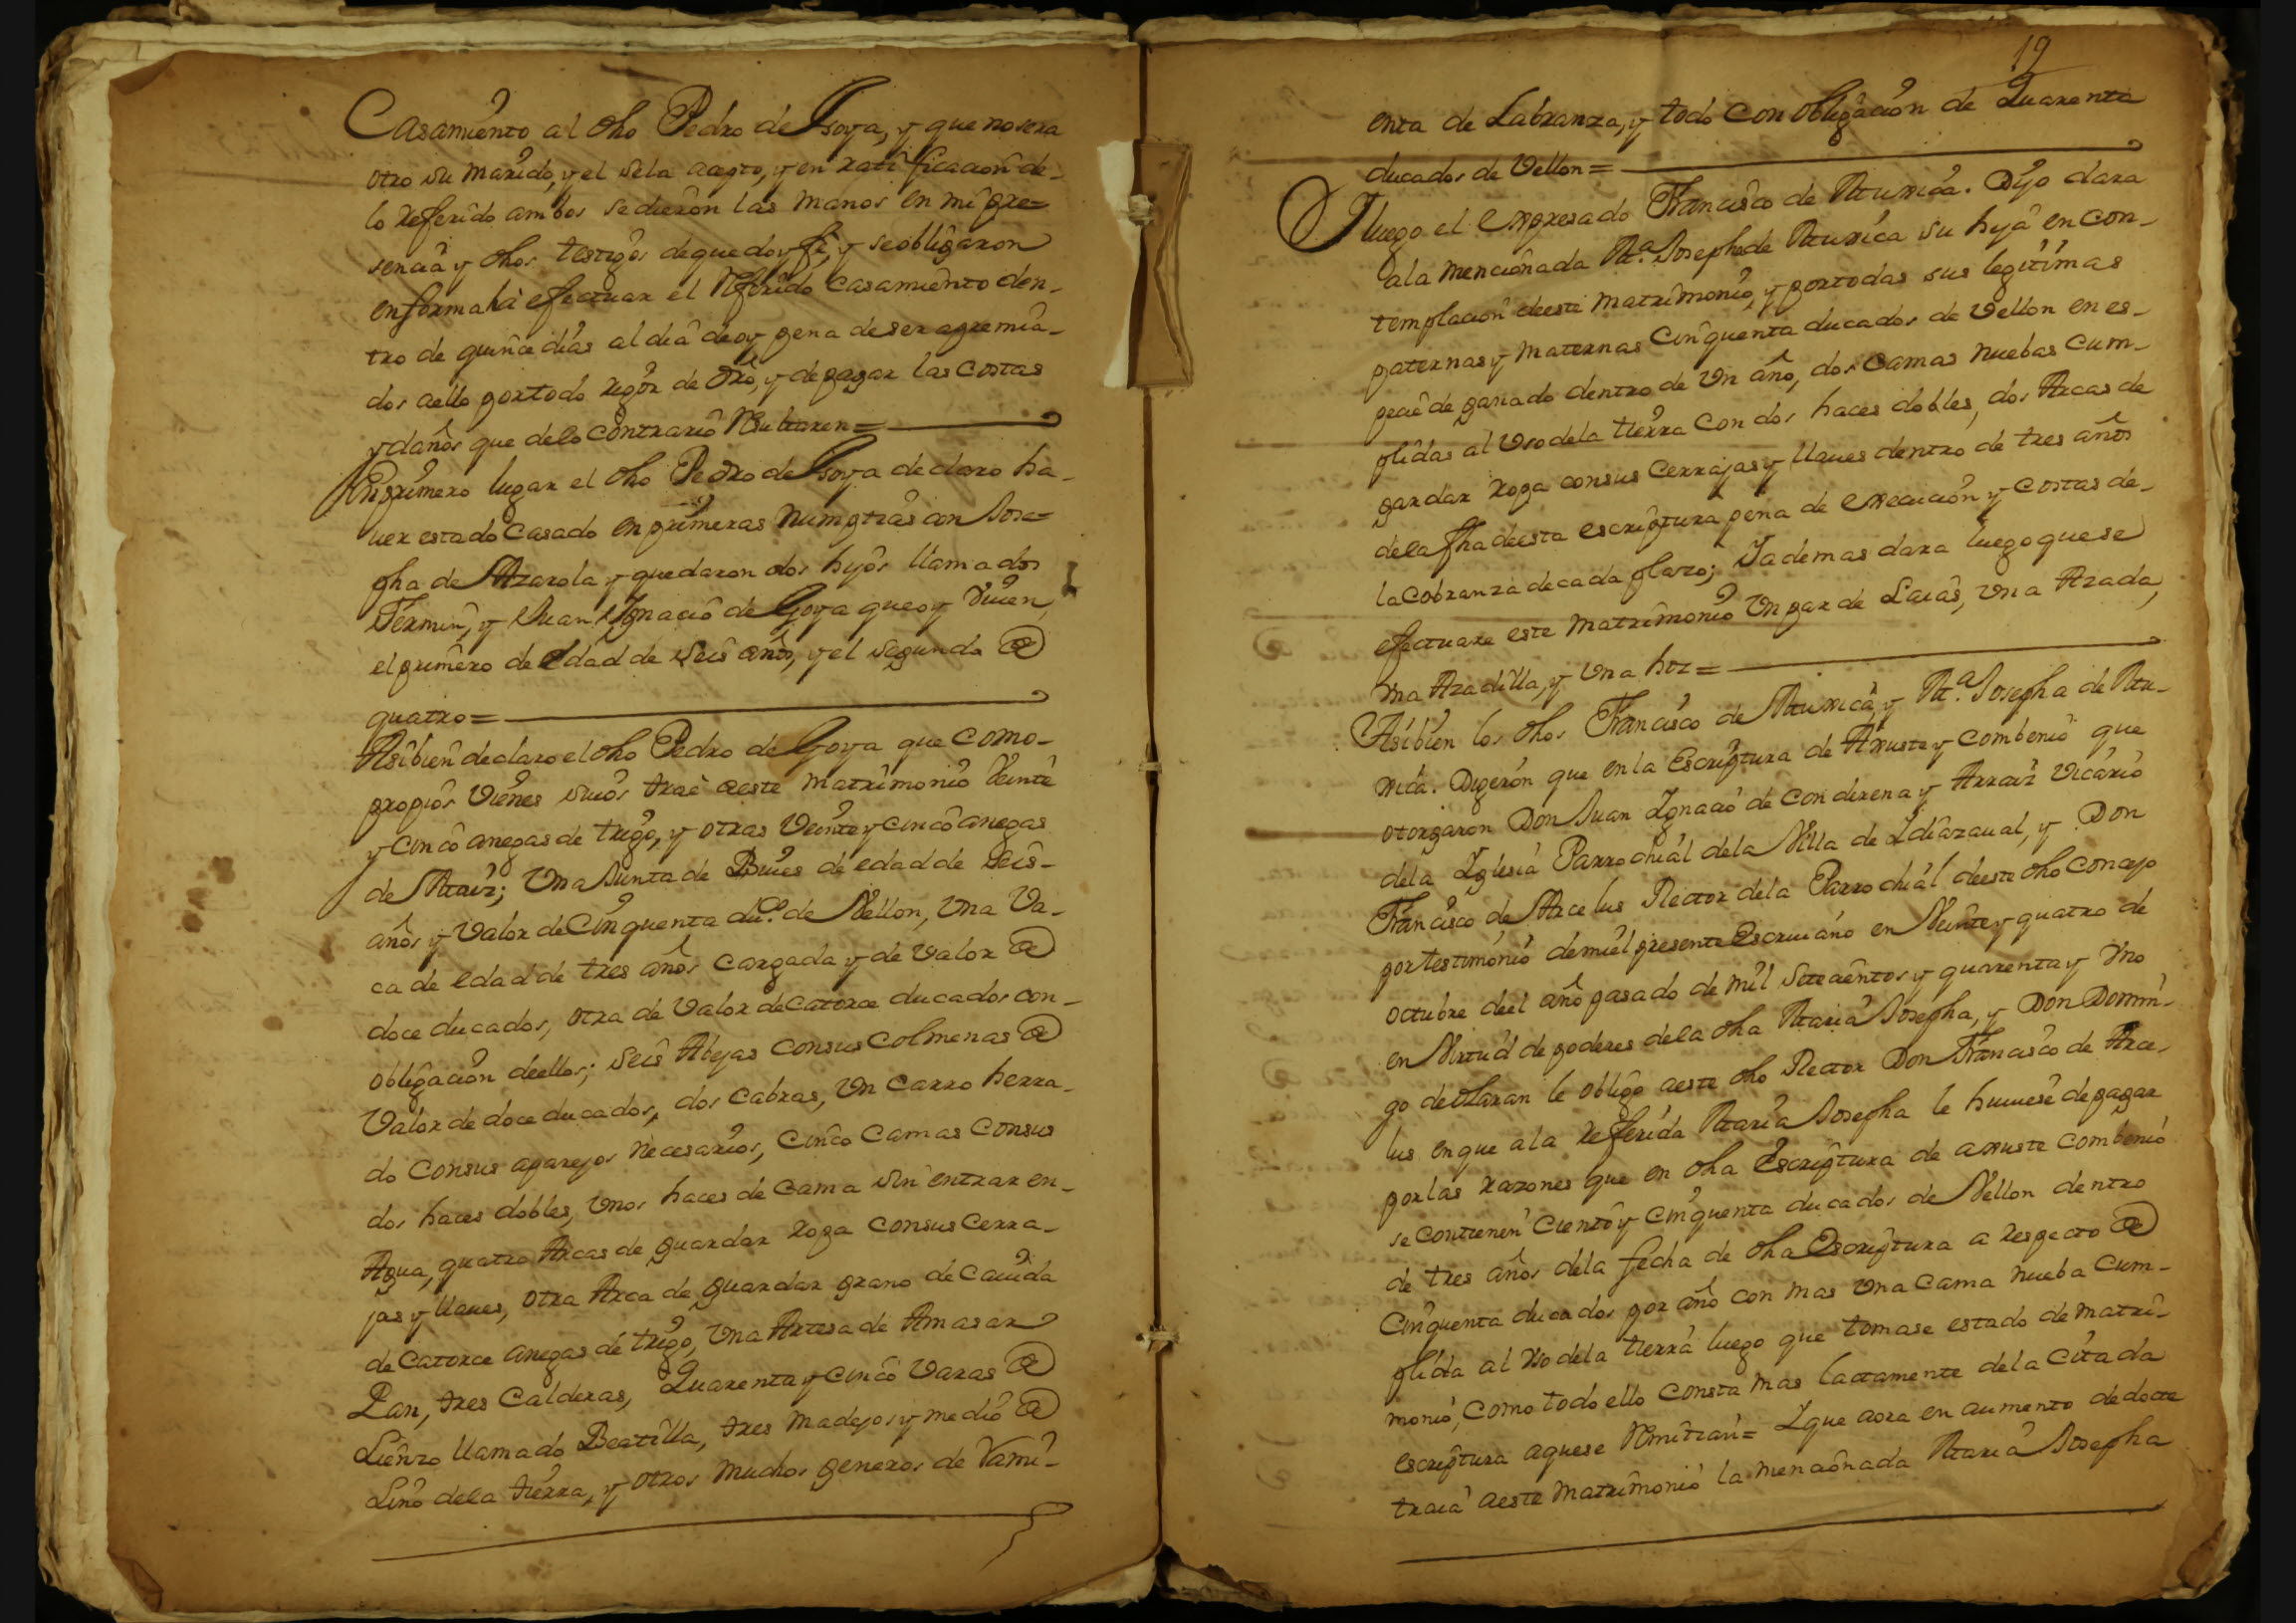 Casamiento al dho Pedro de Goya, y que no sera
otro su marido, y el se la acepto, y en ratificacion de
lo referido ambos se dieron las manos en mi pre=
sencia y dhos testigos de que doy fe, y se obligaron
en forma hà efectuar el referido casamiento den-
tro de quince dias al dia de oy pena de ser apremia-
dos a ello por todo rigor de dro, y de pagar las costas
y daños que de lo contrario resultaren=
En primero lugar el dho Pedro de Goya declaro ha-
uer estado casado en primeras Numptias con Jose=
pha de Mazarola y quedaron dos hijos llamados
Fermin, y Juan Ignacio de Goya que oy viuen,
el primero de edad de seis años, y el segundo de
quatro=
Asibien declaro el dho Pedro de Goya que como-
propios vienes suios trae a este matrimonio veinte
y cinco anegas de trigo, y otras veinte y cinco anegas
de Maiz; Una Junta de Bueies de edad de seis-
años y Valor de Cinquenta duc.os de Vellon, Una Va-
ca de edad de tres años cargada y de valor de
doce ducados, otra de Valor de catorce ducados con-
obligacion de ellos; seis Abejas con sus Colmenas de
Valor de doce ducados, dos cabras, Un carro herra-
do con sus aparejos necesarios, cinco camas con sus
dos haces dobles, Unos haces de cama sin entrar en-
Agua, quatro Arcas de guardar ropa con sus Cerra-
jas y llaues, otra Arca de guardar grano de cauida
de catorce anegas de trigo, Una Artesa de Amasar
Pan, tres Calderas, Quarenta y cinco Varas de
Lienzo llamado Beatilla, tres madejas y media de
Lino de la tierra, y otros muchos generos de Vami-
19
enta de Labranza, y todo con obligacion de Quarenta
ducados de Vellon=
I luego el expresado Francisco de Muxica. Dijo dara
a la mencionada M.a Josepha de Muxica su hija en con-
templacion de este matrimonio, y por todas sus legitimas
paternas y maternas Cinquenta ducados de Vellon en es-
pecie de ganado dentro de Un año, dos Camas nuebas cum-
plidas al Uso de la tierra con dos haces dobles, dos Arcas de
gardar ropa con sus Cerrajas y llaues dentro de tres años
de la fha de esta escriptura pena de execucion y costas de-
la Cobranza de cada plazo; I ademas dara luego que se
efectuare este matrimonio Un par de Laias, Una Azada,
Una Azadilla, y Una hoz=
Asibien los dhos Francisco de Muxica y M.a Josepha de Mu-
xica. Digeron que en la Escriptura de Axuste y combenio que
otorgaron Don Juan Ignacio de Condirena y Arraiz Vicario
de la Iglesia Parrochial de la Villa de Idiazaual, y Don
Francisco de Arcelus Rector de la Parrochial de este dho Concejo
por testimonio de mi el presente Escriuano en Veinte y quatro de
octubre de el año pasado de mil setecientos y quarenta y Uno
en Virtud de poderes de la dha Maria Josepha, y Don Domin-
go de olaran le obligo a este dho Rector Don Francisco de Arce-
lus en que a la referida Maria Josepha le huuiese de pagar
por las razones que en dha Escriptura de axuste combenio
se contienen Ciento y Cinquenta ducados de Vellon dentro
de tres años de la fecha de dha Escriptura a respecto de
Cinquenta ducados por año con mas Una Cama nueba Cum-
plida al Uso de la tierra luego que tomase estado de matri-
monio, como todo ello consta mas lactamente de la citada
escriptura a que se remitian= I que aora en aumento de docte
traia a este Matrimonio la mencionada Maria Josepha